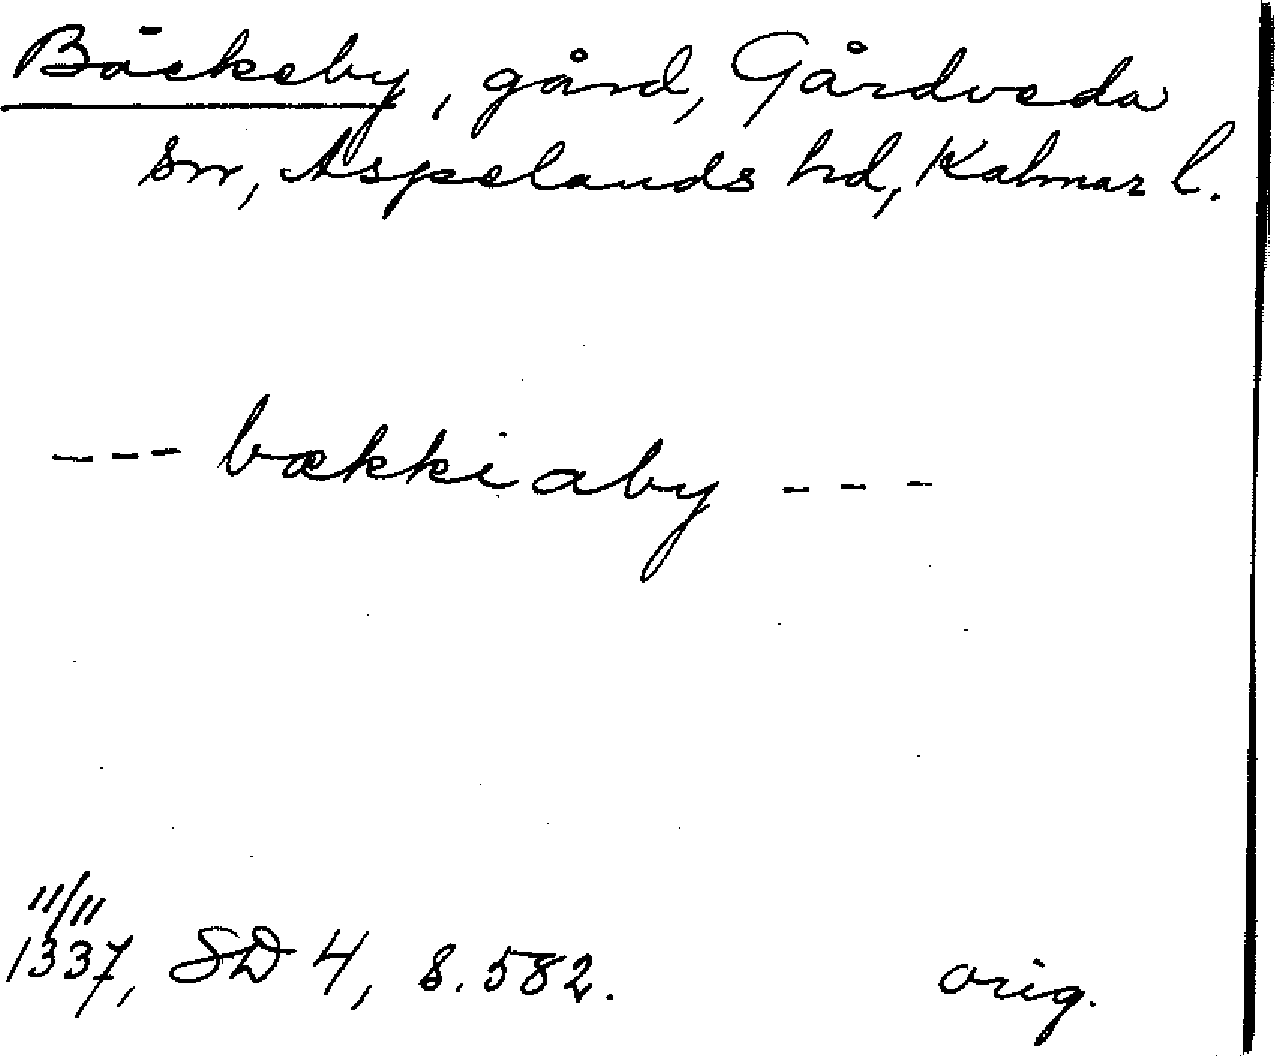 Bäckeby, gård, Gårdveda
sn, Aspelands hd, Kalmar l.
--- bækkiaby ---
11/11
1337, SD 4, s. 582. orig.